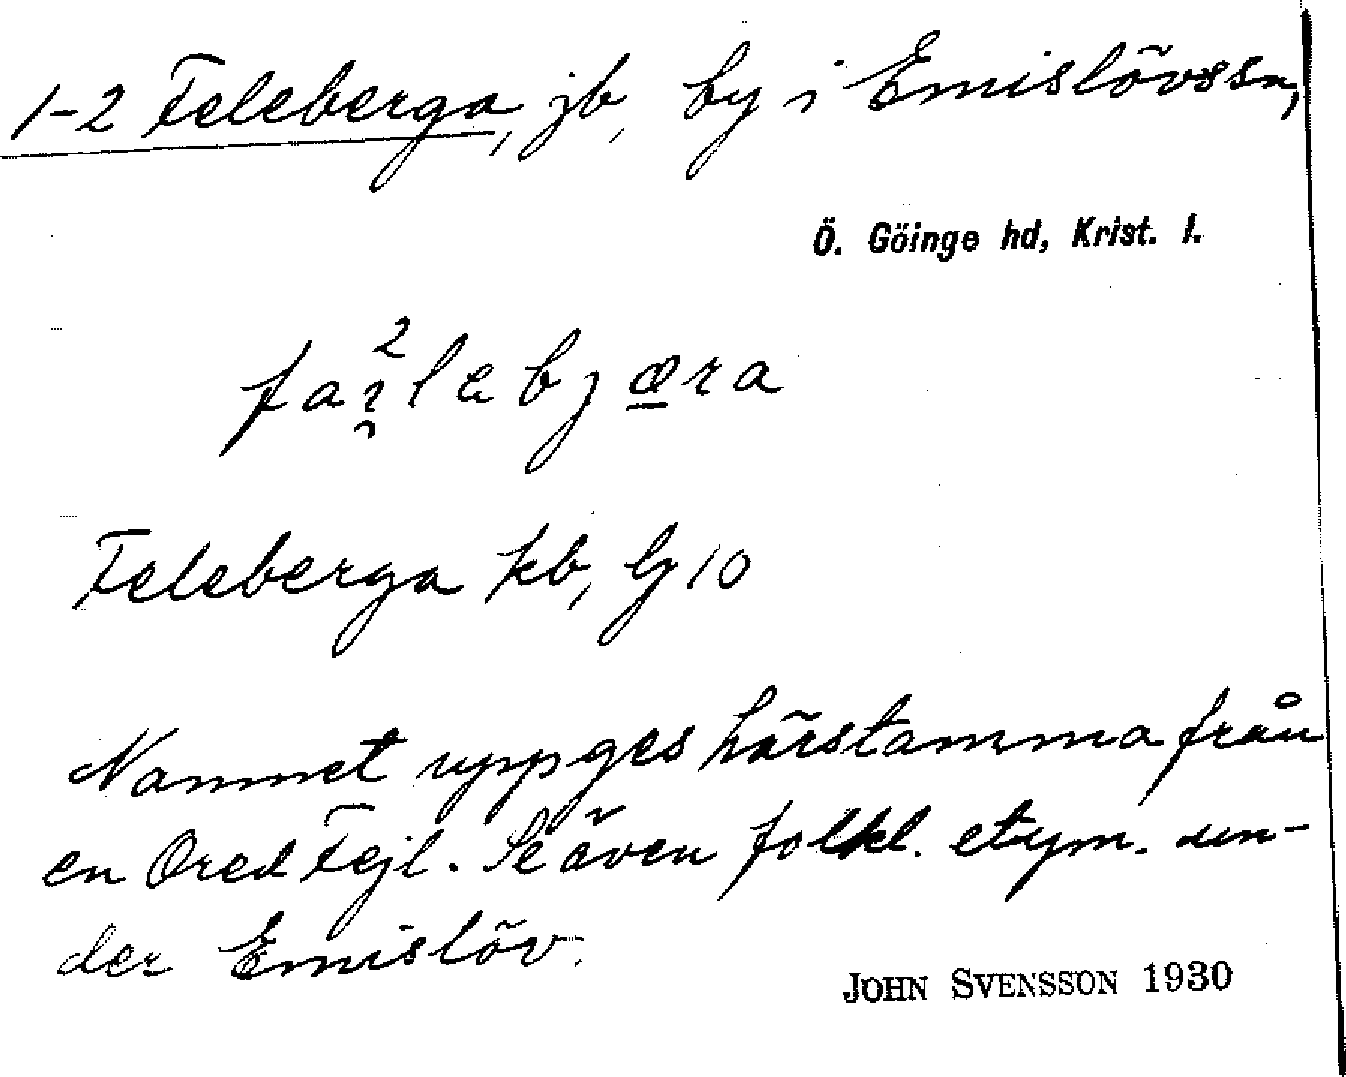 1-2 Feleberga, jb, by i Emislövssn,
Ö. Göinge hd, Krist. l.
Feleberga kb, G 10
Namnet uppges härstamma från
en Ored Fejl. Se även folkl. etym. un-
der Emislöv.
JOHN SVENSSON 1930